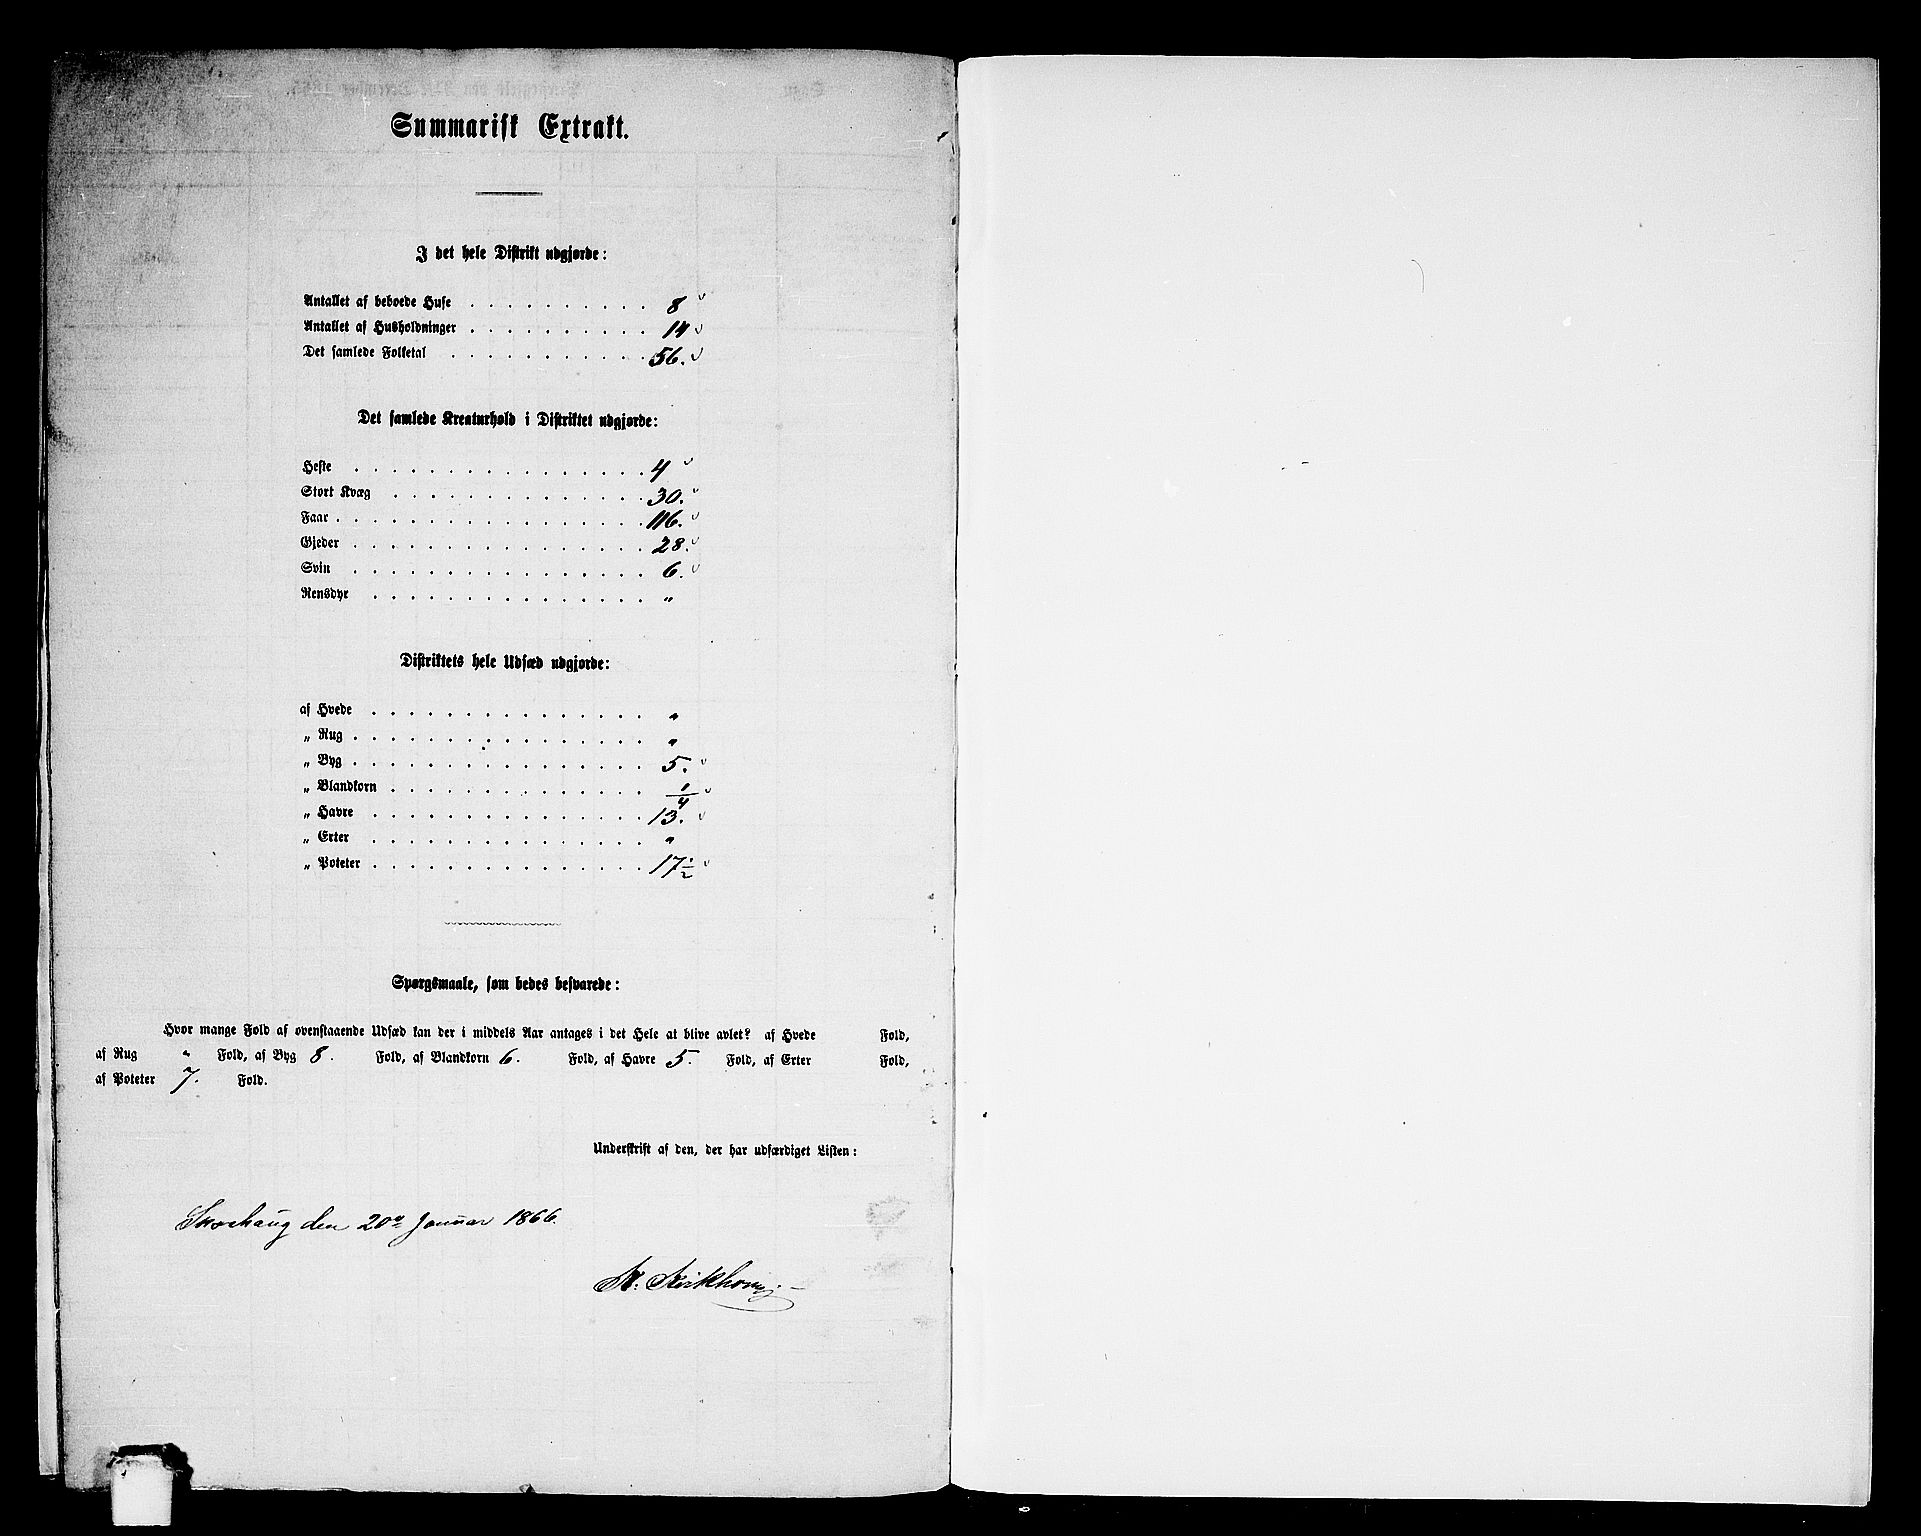 Summarisk Extrakt.
I det hele Distrikt udgjorde:
Antallet af beboede Huse . . . . . . . . . . 8
Antallet af Husholdninger . . . . . . . . . . 14
Det samlede Folketal . . . . . . . . . . . 56.
Det samlede Kreaturhold i Distriktet udgjorde:
Heste . . . . . . . . . . . . . . . . 4
Stort Kvæg . . . . . . . . . . . . . . 30.
Faar . . . . . . . . . . . . . . . . . 116.
Gjeder . . . . . . . . . . . . . . . . 28.
Svin . . . . . . . . . . . . . . . . 6.
Rensdyr . . . . . . . . . . . . . . . „
Distriktets hele Udsæd udgjorde:
af Hvede . . . . . . . . . . . . . . . „
„ Rug . . . . . . . . . . . . . . . . „
„ Byg . . . . . . . . . . . . . . . . 5.
„ Blandkorn . . . . . . . . . . . . . . 1/4
„ Havre . . . . . . . . . . . . . . . 13.
„ Erter . . . . . . . . . . . . . . . „
„ Poteter . . . . . . . . . . . . . . . 17 1/2
Spørgsmaale, som bedes besvarede:
Hvor mange Fold af ovenstaaende Udsæd kan der i middels Aar antages i det Hele at blive avlet? af Hvede Fold,
af Rug „ Fold, af Byg 8. Fold, af Blandkorn 6. Fold, af Havre 5. Fold, af Erter Fold,
af Poteter 7. Fold.
Underskrift af den, der har udfærdiget Listen:
den 20de Januar 1866.